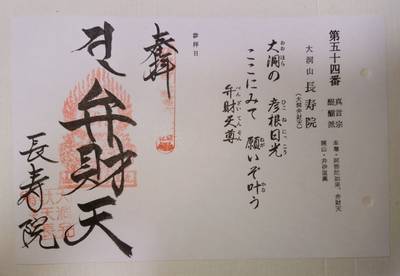 第五十四番
真言宗
醍醐派
大洞山 長寿院
(大洞弁財天)
本尊・阿弥陀如来、弁財天
大洞の 彦根日光
おおほら ひこねにっこう
ここにみて 願いぞ叶う
ねが かな
弁財天尊
べんざいてんそん
参拝日
奉拝
弁財天
長寿院